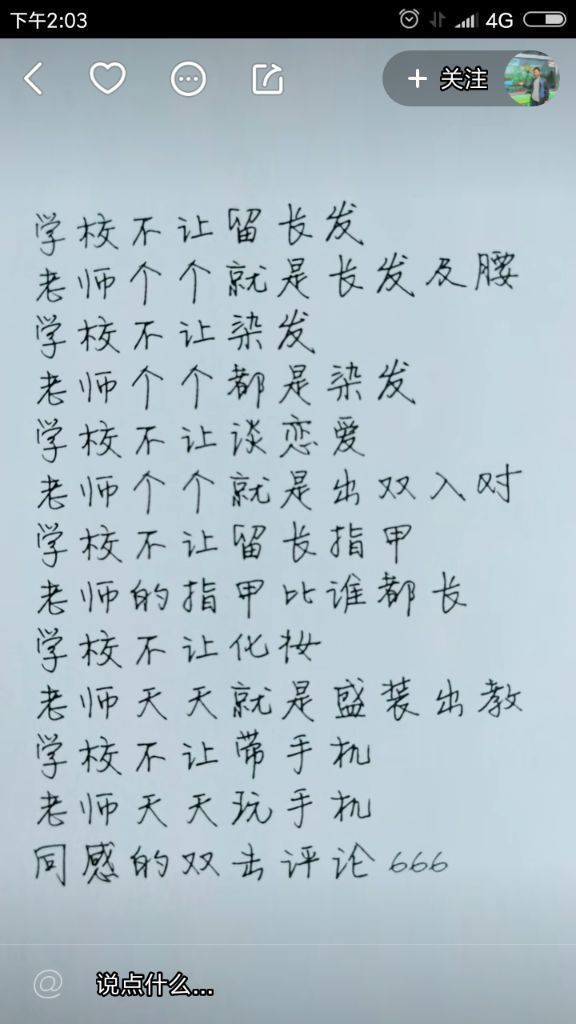 下午2:03 4G
+ 关注
学校不让留长发
老师个个就是长发及腰
学校不让染发
老师个个都是染发
学校不让谈恋爱
老师个个就是出双入对
学校不让留长指甲
老师的指甲比谁都长
学校不让化妆
老师天天就是盛装出教
学校不让带手机
老师天天玩手机
同感的双击评论666
@ 说点什么...